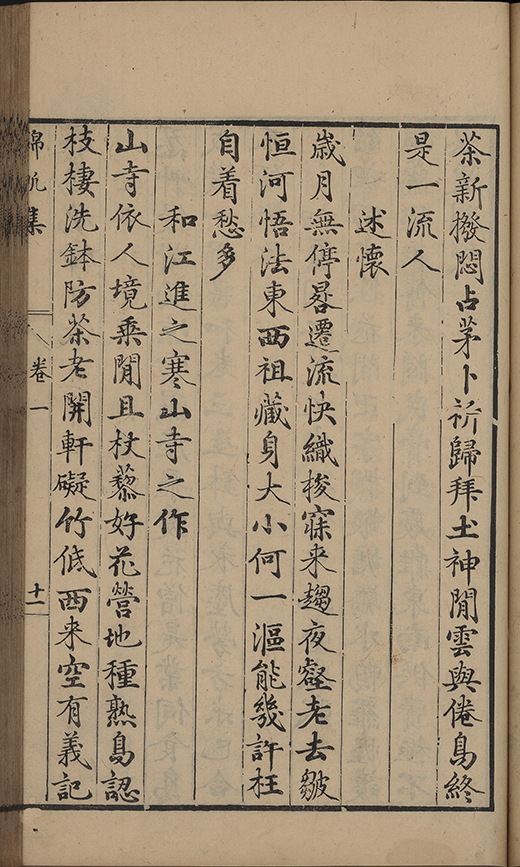 茶新撥悶占茅卜祈歸拜土神閒雲與倦鳥終
是一流人
述懷
歲月無停晷遷流快織梭寐来趨夜壑老去皺
恒河悟法東西祖藏身大小何一漚能幾許枉
自着愁多
和江進之寒山寺之作
山寺依人境乘閒且杖藜好花營地種熟鳥認
枝棲洗鉢防茶老開軒礙竹低西来空有義記
錦帆集
卷一
十一